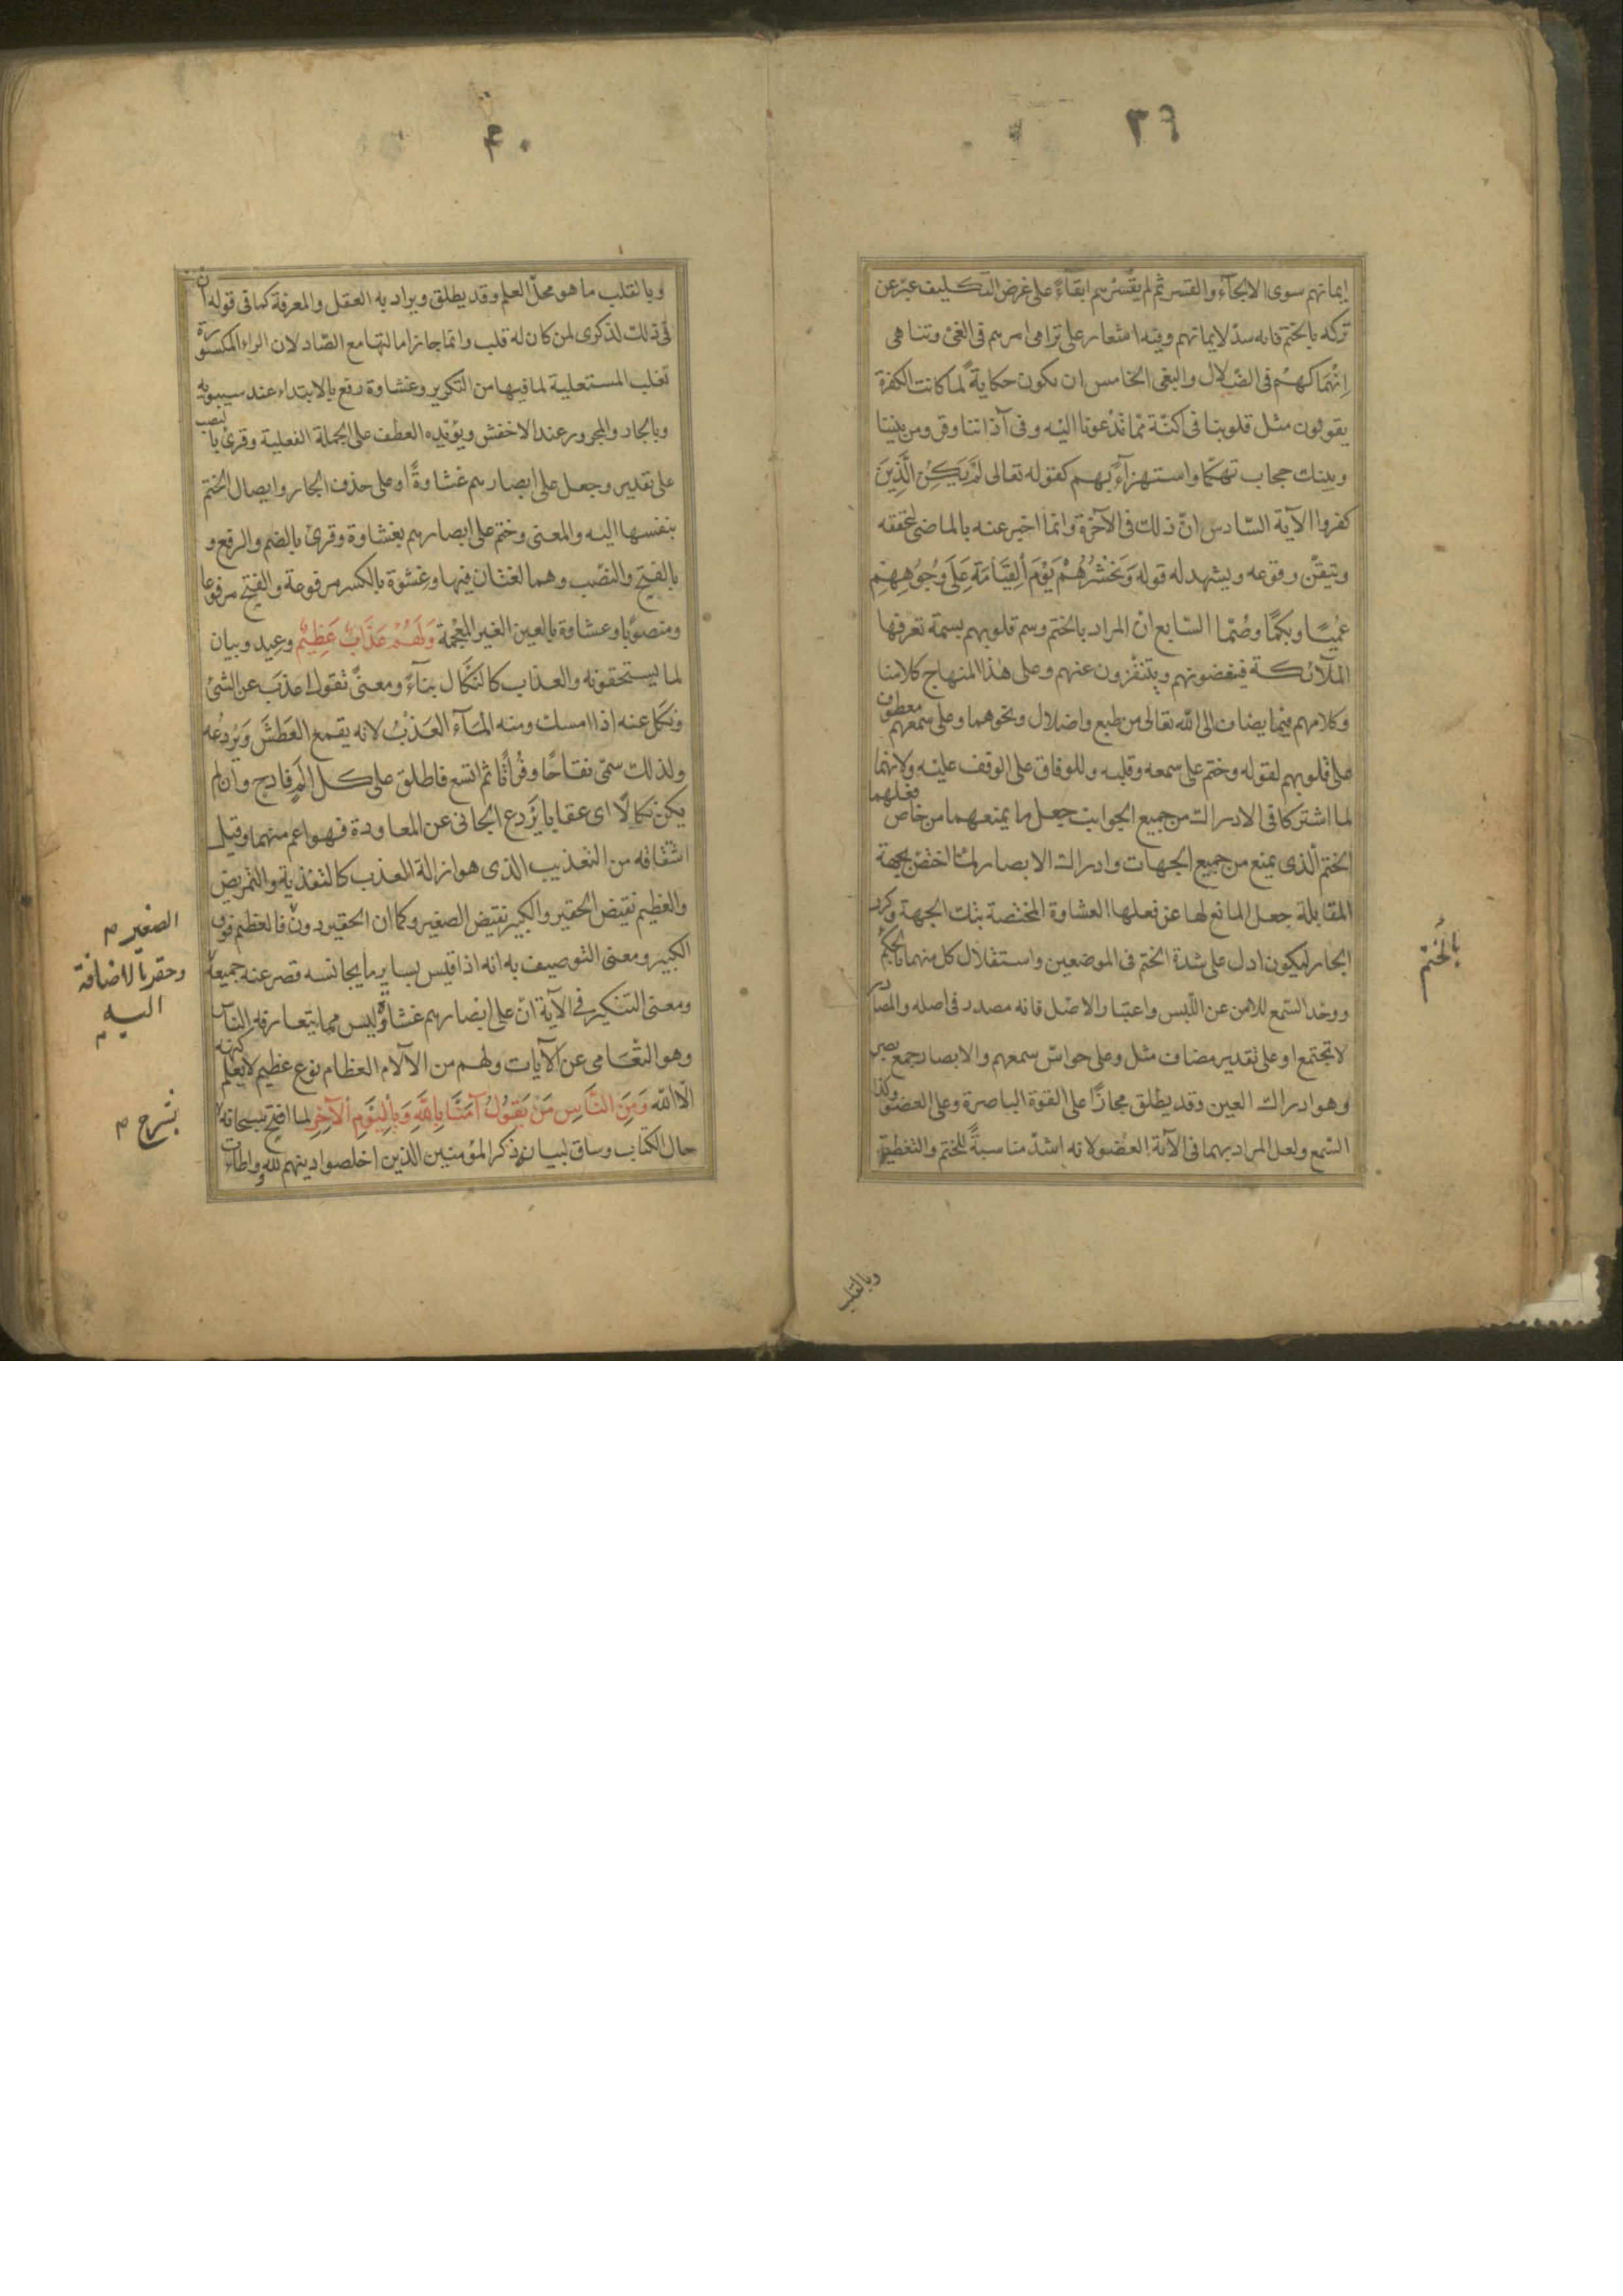 ٣٩
ايمانهم سوى الالجآء والقسر ثم لم يقسرهم ابقآءً على غرض التكليف عبّر عن
تركه بالختم فانه سدّ لايمانهم وفيه اشعار على ترامى امرهم فى الغىّ وتناهى
اِنْهِمَاكهم فى الضّلال والبغى الخامس ان يكون حكايةً لما كانت الكفرة
يقولون مثل قلوبنا فى اكنّة ممّا تدْعونا اليْه وفى آذاننا وقر ومن بيننا
وبينك حجاب تهكّما واستهزآءً بهم كقوله تعالى لَمْ يَكُنِ الَّذِينَ
كفروا الآية السّادس انّ ذلك فى الآخرة وانّما اخبر عنه بالماضى لتحققه
وتيقّن وقوعه ويشهد له قوله وَنَحْشُرُهُمْ يَوْمَ الْقِيَامَةِ عَلَى وُجُوهِهِمْ
عُمْيًا وبكمًا وصُمّا السّابع انّ المراد بالختم وسم قلوبهم بسمة تعرفها
الملآئكة فيبغضونهم ويتنفّرون عنهم وعلى هذا المنهاج كلامنا
وكلامهم فيما يضاف الى الله تعالى من طبع واضلال ونحوهما وعلى سمعهم معطوف
على قلوبهم لقوله وختم على سمعه وقلبه وللوفاق على الوقف عليْه ولانهما
لما اشتركا فى الادراك من جميع الجوانب جعل ما يمنعهما من خاص فعلهما
الختم الّذى يمنع من جميع الجهات وادراك الابصار لمّا اختصّ بجهة
المقابلة جعل المانع لها عن فعلها العشاوة المختصة بتلك الجهة وكرر
الجار ليكون ادل على شدة الختم فى الموضعين واستقلال كل منهما بالحكم
بالختم
ووحّد السّمع للامن عن اللّبس واعتبار الاصْل فانه مصدر فى اصله والمصادر
لا تجتمع او على تقدير مضاف مثل وعلى حواسّ سمعهم والابصار جمع بصر
وهو ادراك العين وقد يطلق مجازًا على القوة الباصرة وعلى العضو وكذا
السّمع ولعل المراد بهما فى الآية العضو لانه اشدّ مناسبةً للختم والتغطية
وبالقلب
٤٠
وبالقلب ما هو محلّ العلم وقد يطلق ويراد به العقل والمعرفة كما فى قوله انّ
فى ذلك لذكرى لمن كان له قلب وانما جاز امالتها مع الصّاد لان الراء المكسورة
تغلب المستعلية لما فيها من التكرير وغشاوة رفع بالابتداء عند سيبويه
وبالجار والمجرور عند الاخفش ويؤيّده العطف على الجملة الفعلية وقرئ بالنصب
على تقدير وجعل على ابصارهم غشاوةً او على حذف الجار وايصال الختم
بنفسها اليه والمعنى وختم على ابصارهم بغشاوة وقرئ بالضم والرفع و
بالفتح والنصْب وهما لغتان فيها وغشوة بالكسر مرفوعة والفتح مرفوعا
ومنصوبًا وعشاوة بالعين الغير المعْجمة وَلَهُمْ عَذَابٌ عَظِيْمٌ وعيد وبيان
لما يستحقونه والعذاب كالنكال بنآءً ومعنىً تقول اعذبَ عن الشئ
ونكل عنه اذا امسك ومنه المآء العَذْبُ لانه يقمع العَطَشَ وَيَرْدعه
ولذلك سمّى نقاخًا وفُراتًا ثم اتسع فاطلق على كل المٍ فادح وان لم
يكن نكالًا اى عقابا يَرْدع الجانى عن المعاودة فهو اعم منهما وقيل
اشتقاقه من التعْذيب الّذى هو ازالة العذب كالتقذية والتمريض
والعظيم نقيض الحقير والكبير نقيض الصغير وكما ان الحقير دون فالعظيم فوق
الصغير م
الكبير ومعنى التوصيف به انه اذا قيس بساير ما يجانسه قصر عنه جميعه
وحقر بالاضافة
اليه م
ومعنى التنكير فى الآية انّ على ابْصارهم غشاوة ليس مما يتعارفه النّاس
وهو التّعَامى عن الآيات ولهم من الآلام العظام نوع عظيم لا يعْلم كنهه
الّا الله وَمِنَ النَّاسِ مَنْ يَقُولُ آمَنَّا بِاللَّهِ وَبِالْيَوْمِ الْآخِرِ لما افتح سبحانه
بشرح م
حال الكتاب وساق لبيانه ذكر المؤمنين الذين اخلصوا دينهم لله واطات